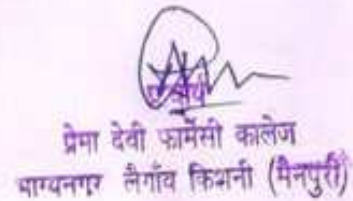 प्राचार्य
प्रेमा देवी फार्मेसी कालेज
भाग्यनगर लैगाँव किशनी (मैनपुरी)